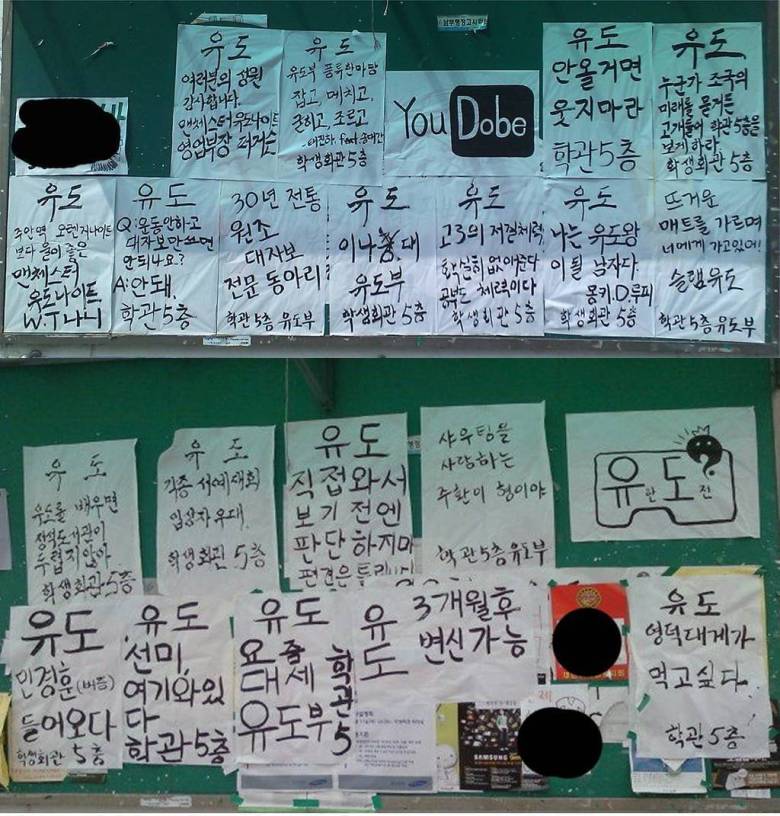 유도
여러분의 성원
감사합니다.
맨체스터유도나이트
영업부장 퍼거슨
유도
유도부 풍류한마당
잡고, 메치고,
굳히고, 조르고
학생회관 5층
You Dobe
유도
안올거면
웃지마라
학관 5층
유도
누군가 조국의
미래를 묻거든
고개들어 학관 5층을
보게하라
학생회관 5층
유도
주안역 오렌지나이트
보다 물이 좋은
맨체스터
유도나이트
W.T.나니
유도
Q: 운동안하고
대자보만쓰면
안되나요?
A: 안돼.
학관 5층
30년 전통
원조
대자보
전문 동아리
학관 5층 유도부
유도
이나중대
유도부
학생회관 5층
유도
고3의 저질체력,
확실히 없애준다
공부도 체력이다
학생회관 5층
유도
나는 유도왕
이 될 남자다.
몽키.D.루피
학생회관 5층
뜨거운
매트를 가르며
너에게 가고있어!
슬램유도
학관 5층 유도부
유도
유도를 배우면
정석도서관이
두렵지않아
학생회관 5층
유도
각종 서예대회
입상자 우대.
학생회관 5층
유도
직접와서
보기 전엔
판단하지마
편견은
샤우팅을
사랑하는
주환이 형이야
학관 5층 유도부
유한도전
유도
민경훈(버즘)
들어오다
학생회관 5층
유도
선미,
여기와있
다
학관 5층
유도
요즘
대세
유도부
학관 5
유도
3개월후
변신가능
SAMSUNG
유도
영덕대게가
먹고싶다.
학관 5층